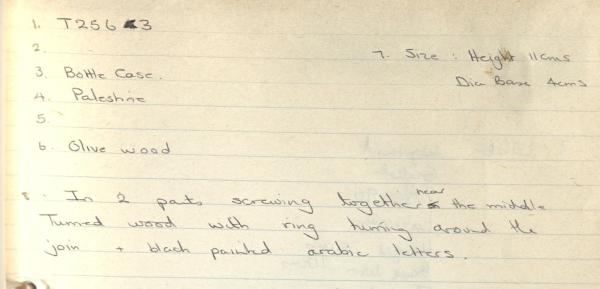 1. T256 3
2.
3. Bottle Case.
4. Palestine
5.
6. Olive wood
7. Size : Height 11cms
Dia Base 4cms
8. In 2 parts screwing together near the middle
Turned wood with ring turning around the
join + black painted arabic letters.